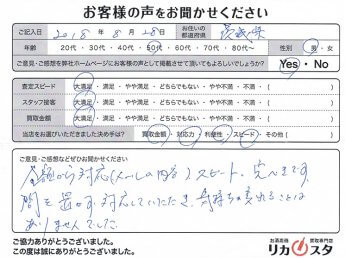 お客様の声をお聞かせください
ご記入日 2018年8月28日 お住いの都道府県 茨城県
年齢 20代・30代・40代・50代・60代・70代・80代〜 性別 男・女
ご意見・ご感想を弊社ホームページにお客様の声として掲載させて頂いてもよろしいでしょうか? Yes・No
査定スピード 大満足・満足・やや満足・どちらでもない・やや不満・不満・( )
スタッフ接客 大満足・満足・やや満足・どちらでもない・やや不満・不満・( )
買取金額 大満足・満足・やや満足・どちらでもない・やや不満・不満・( )
当店をお選びいただきました決め手は? 買取金額・対応力・利便性・スピード・その他( )
ご意見・ご感想などぜひお聞かせください
金額から対応(メールの内容)スピード、完ぺきです
間を置かず対応していただき、気持ちが変れることは
ありませんでした。
ご協力ありがとうございました。
この度は誠にありがとうございました。
お酒高価買取専門店
リカスタ